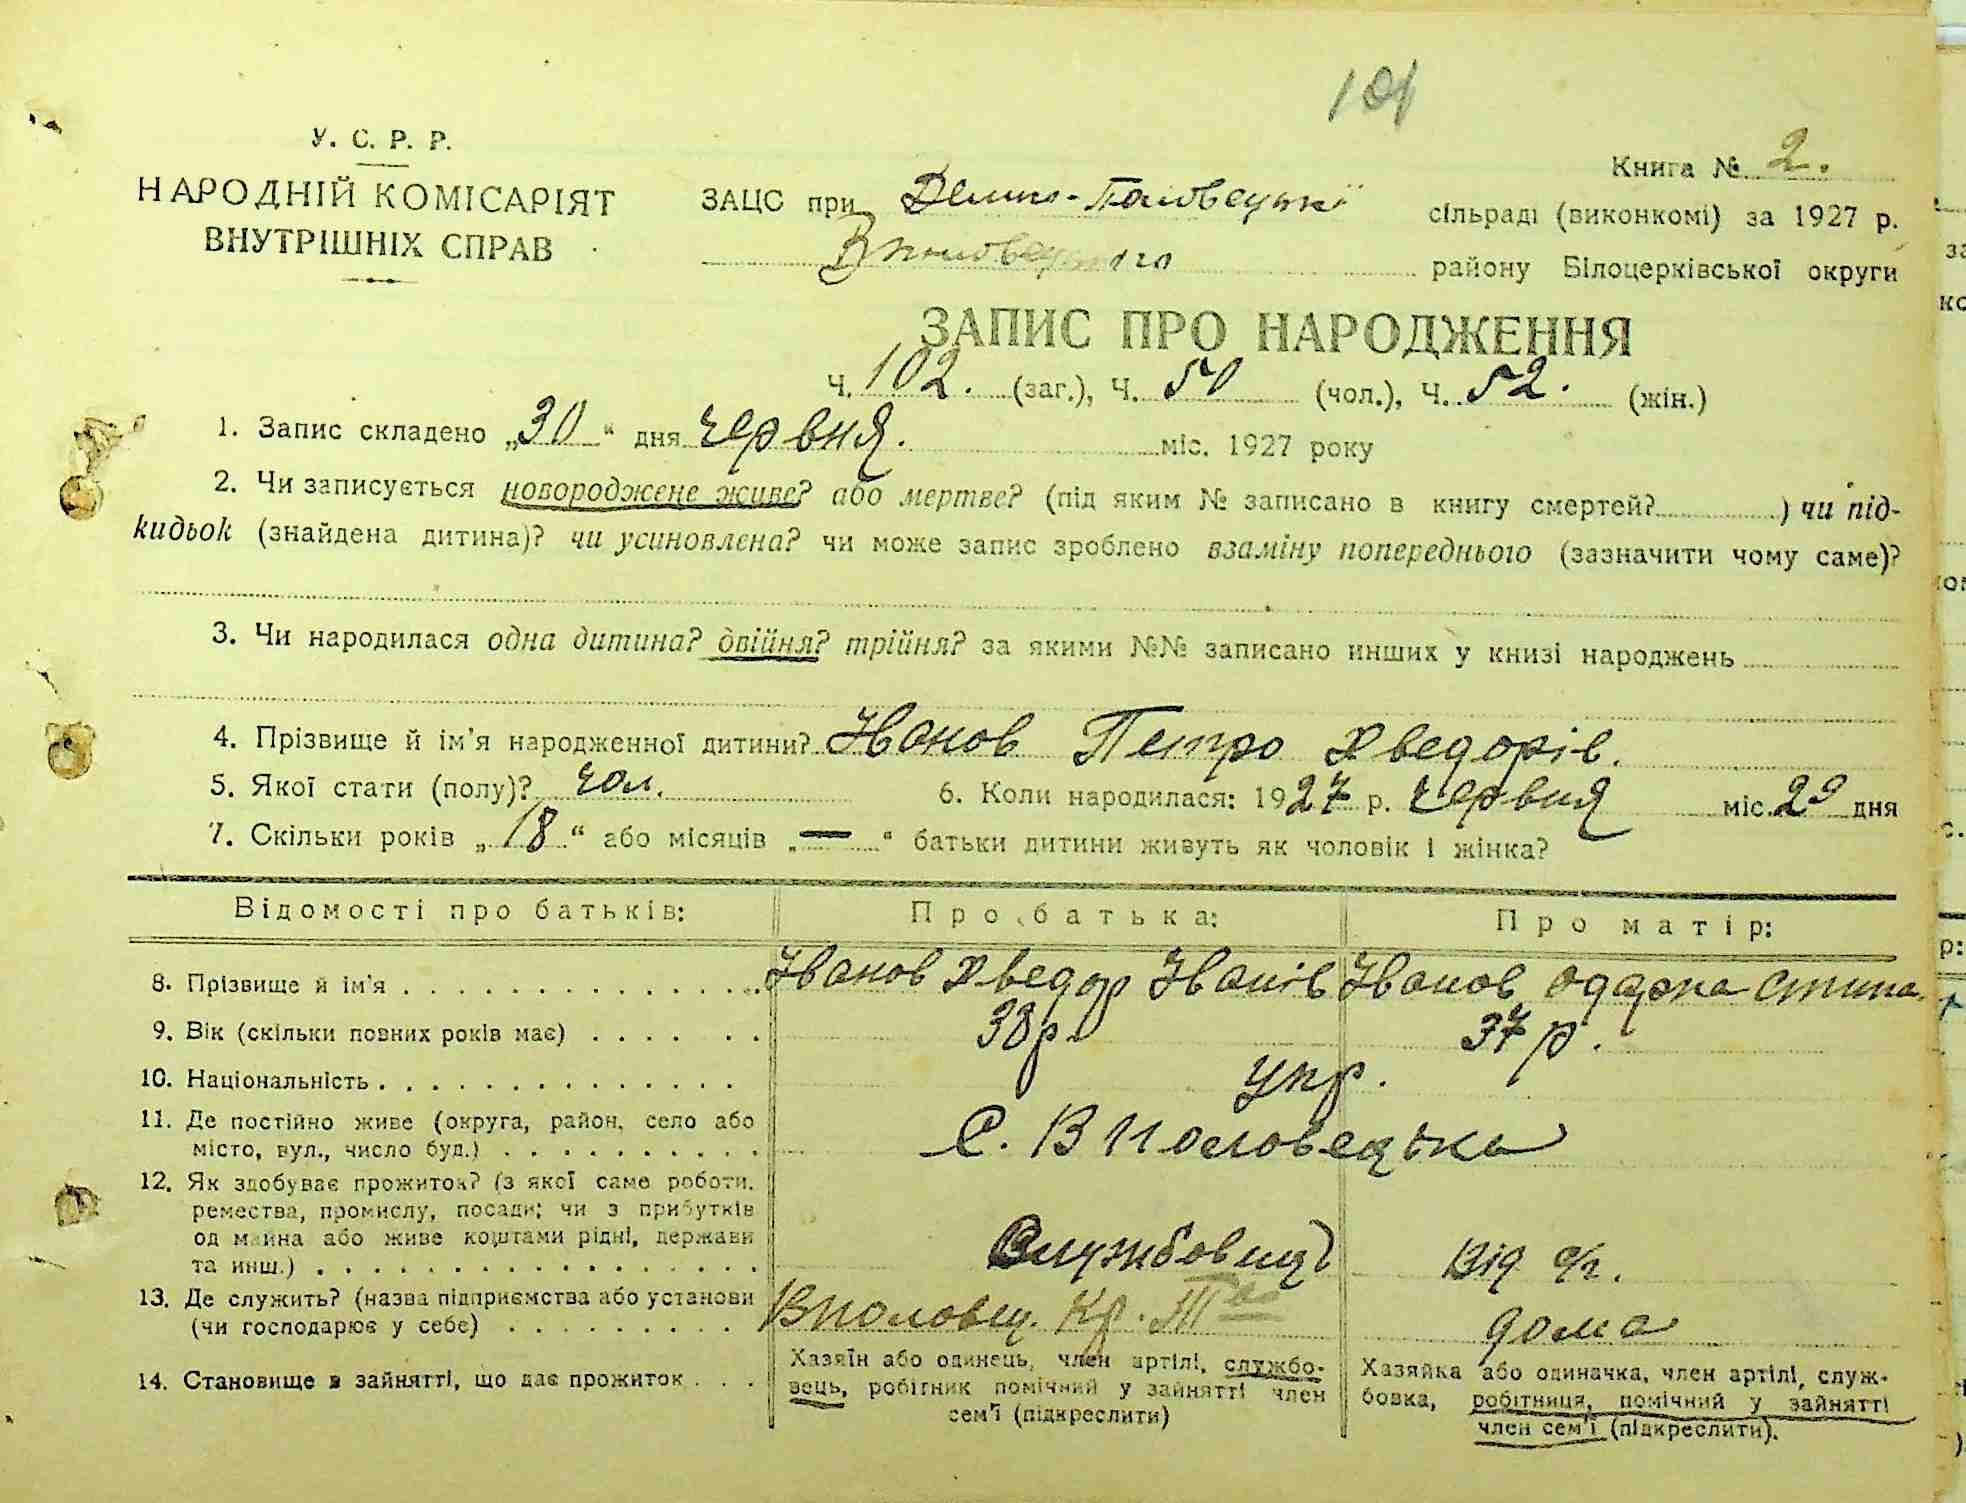 101
У. С. Р. Р.
НАРОДНІЙ КОМІСАРІЯТ
ВНУТРІШНІХ СПРАВ
Книга № 2.
ЗАЦС при Велико-Половецькій сільраді (виконкомі) за 1927 р.
району Білоцерківської округи
ЗАПИС ПРО НАРОДЖЕННЯ
Ч. 102. (заг.), Ч. 50 (чол.), Ч. 52. (жін.)
1. Запис складено „30“ дня червня. міс. 1927 року
2. Чи записується новороджене живе? або мертве? (під яким № записано в книгу смертей? ) чи під-
кидьок (знайдена дитина)? чи усиновлена? чи може запис зроблено взаміну попереднього (зазначити чому саме)?
3. Чи народилася одна дитина? двійня? трійня? за якими №№ записано инших у книзі народжень
4. Прізвище й ім'я народженної дитини? Іванов Петро Хведорів.
5. Якої стати (полу)? чол. 6. Коли народилася: 1927 р. червня міс. 29 дня
7. Скільки років „18“ або місяців „—“ батьки дитини живуть як чоловік і жінка?
Відомості про батьків: Про батька: Про матір:
8. Прізвище й ім'я Іванов Хведор Іванів Іванов Одарка
9. Вік (скільки повних років має) 38 р. 37 р.
10. Національність укр.
11. Де постійно живе (округа, район, село або
місто, вул., число буд.) С. В Половецька
12. Як здобуває прожиток? (з якої саме роботи,
ремества, промислу, посади; чи з прибутків
од майна або живе коштами рідні, держави
та инш.) Службовець Від с/г.
13. Де служить? (назва підприємства або установи
(чи господарює у себе) Вполовец. Кр. Т-во дома
14. Становище в зайнятті, що дає прожиток
Хазяїн або одинець, член артілі, службо-
вець, робітник помічний у зайнятті член
сем'ї (підкреслити)
Хазяйка або одиначка, член артілі, служ-
бовка, робітниця, помічний у зайнятті
член сем'ї (підкреслити).